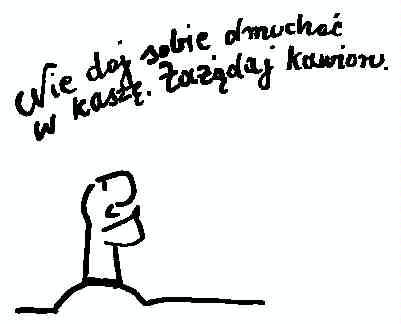 Nie daj sobie dmuchać
w kaszę. Zażądaj kawioru.